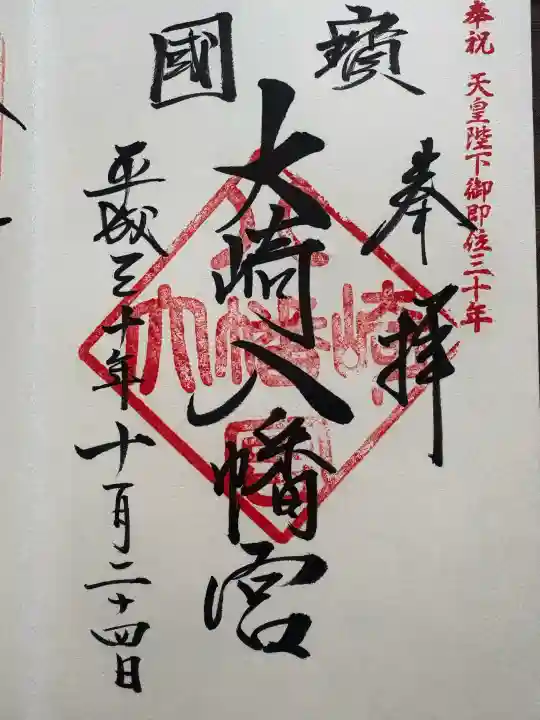 奉祝 天皇陛下御即位三十年
國寳
奉拝
大崎八幡宮
大崎八幡宮
平成三十年十月二十四日